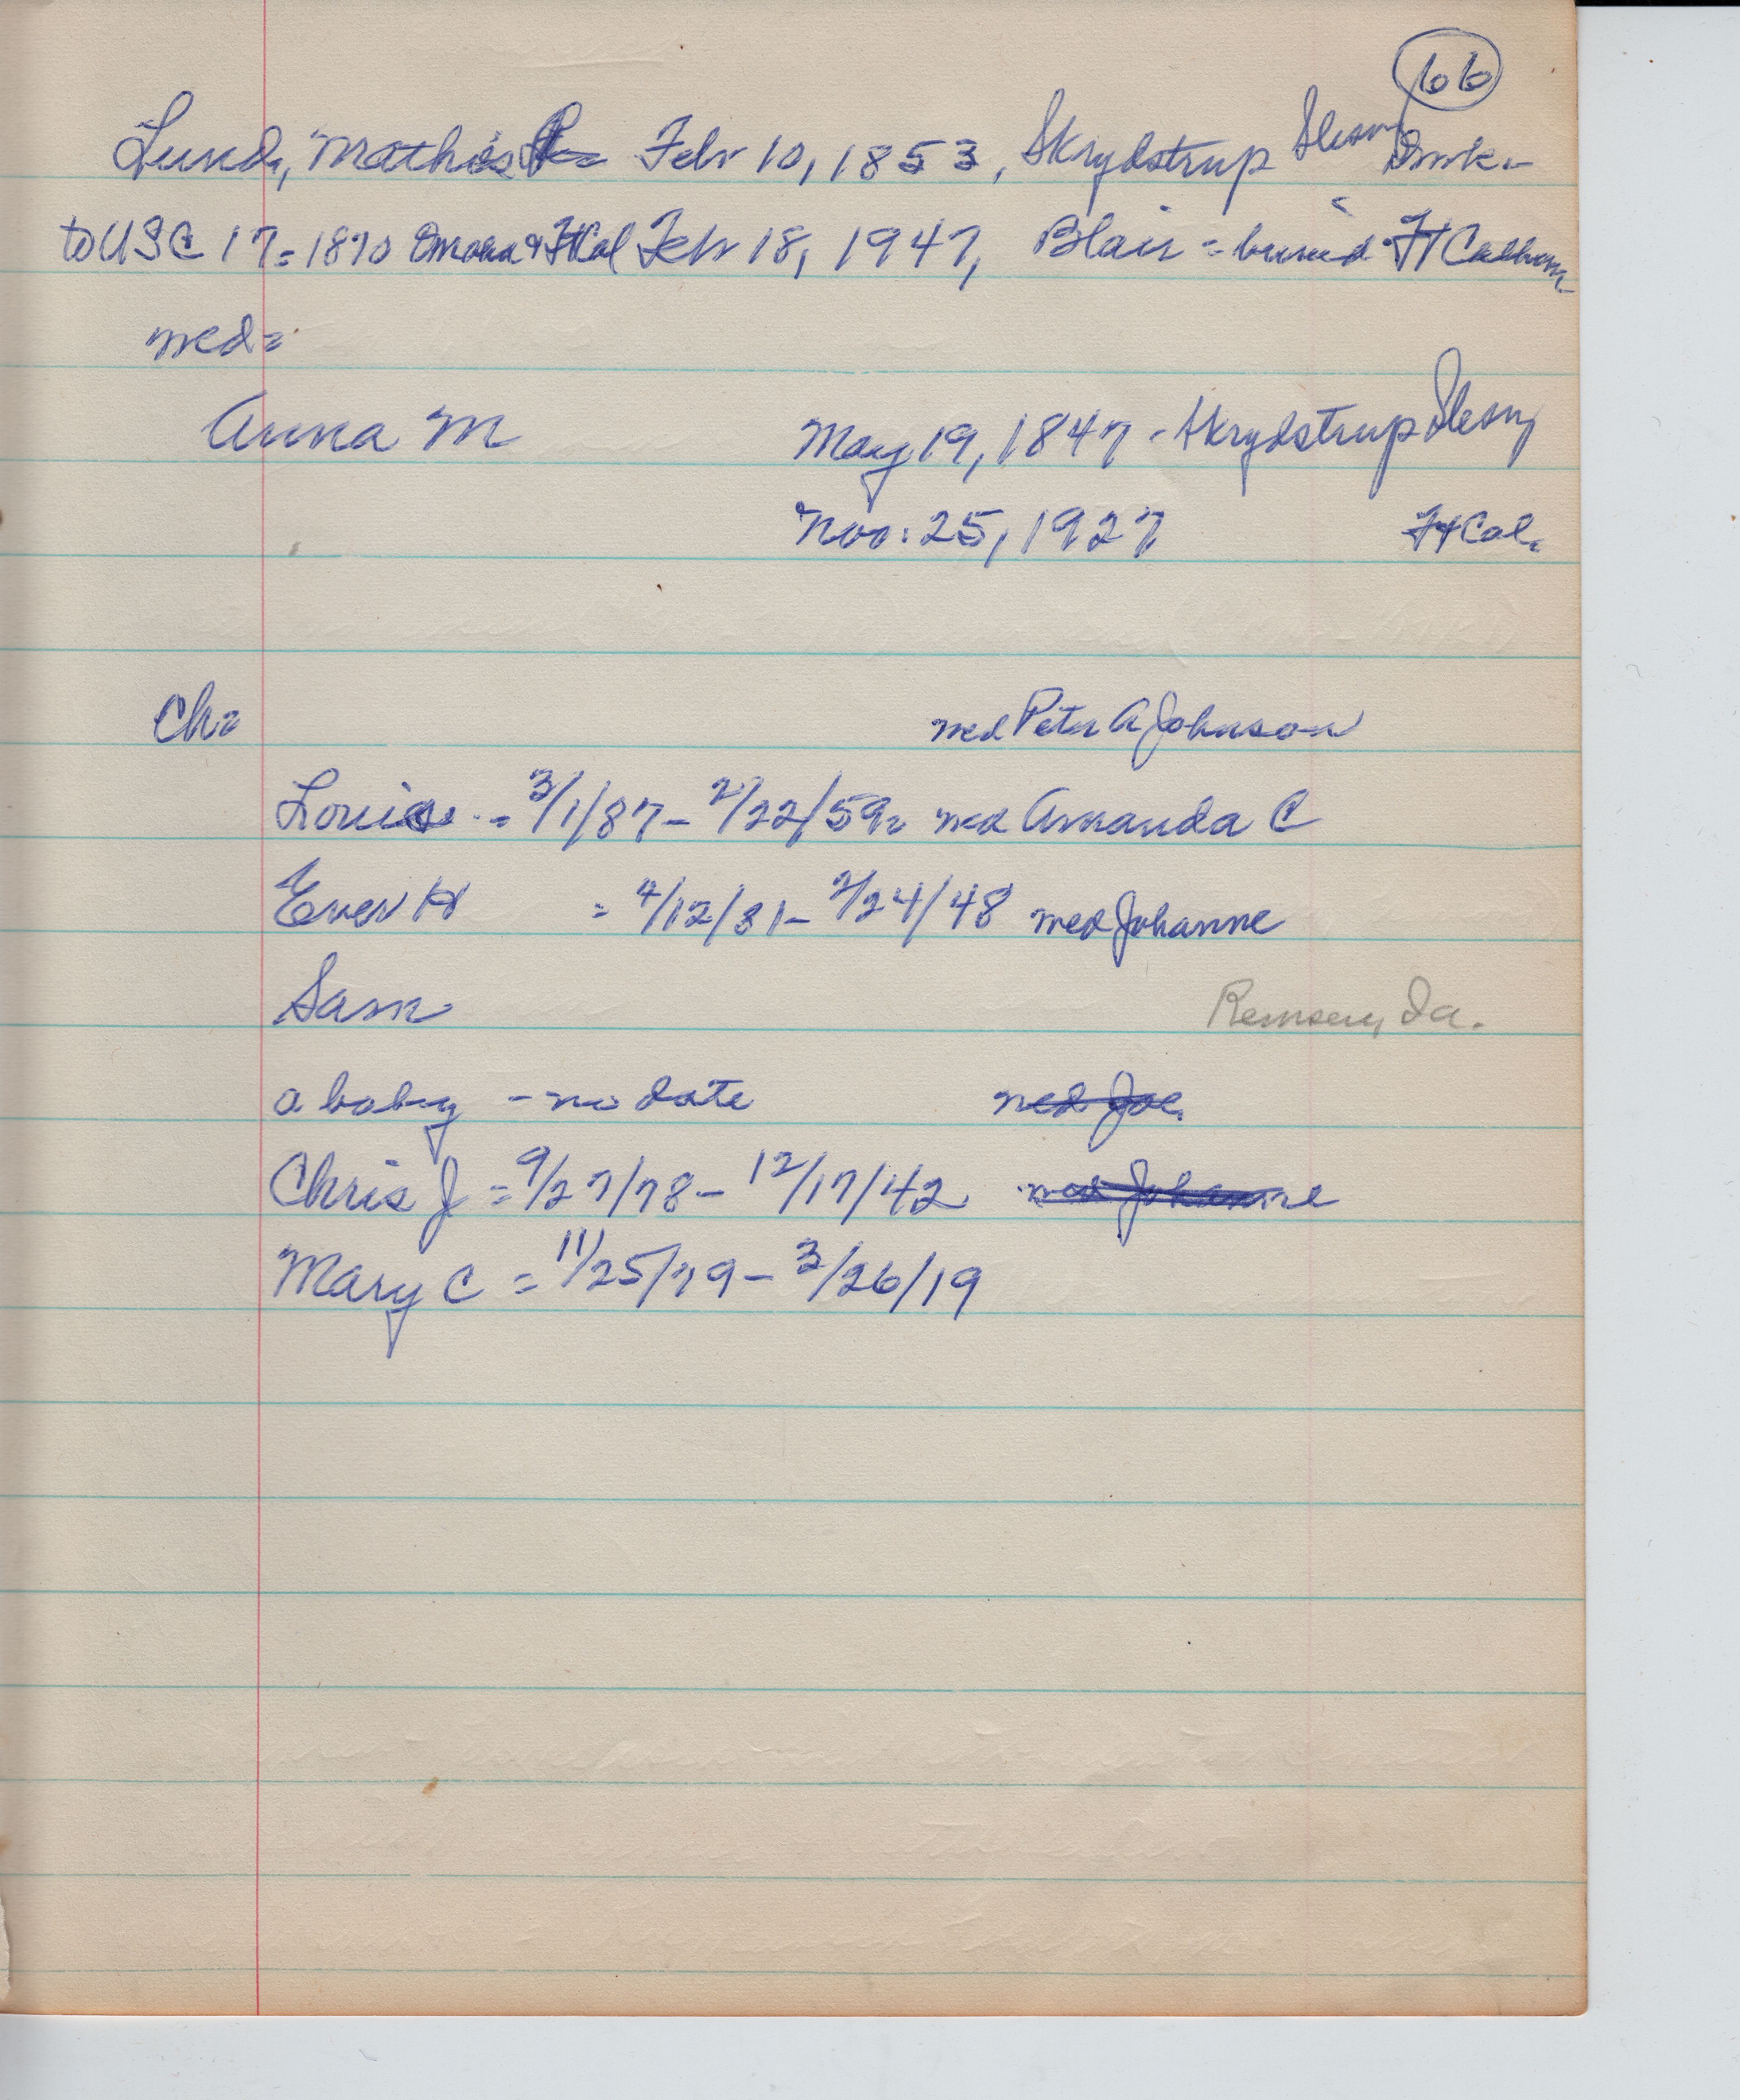 66
Lund, Mathis Feb 10, 1853, Skrydstrup Slesv Dmk-
to USC 17 = 1870 Omaha & Ft Cal Feb 18, 1947, Blair = buried Ft Calhoun
med=
Anna M May 19, 1847 - Skrydstrup Slesv
Nov. 25, 1927 Ft Cal.
Ch= med Peter A Johnson
Louise = 3/1/87 - 2/22/59 = med Amanda C
Ever H = 4/12/81 - 2/24/48 med Johanne
Sam Remsen, Ia.
a baby - no date med Joe.
Chris J = 9/27/78 - 12/17/42 med Johanne
Mary C = 11/25/79 - 3/26/19